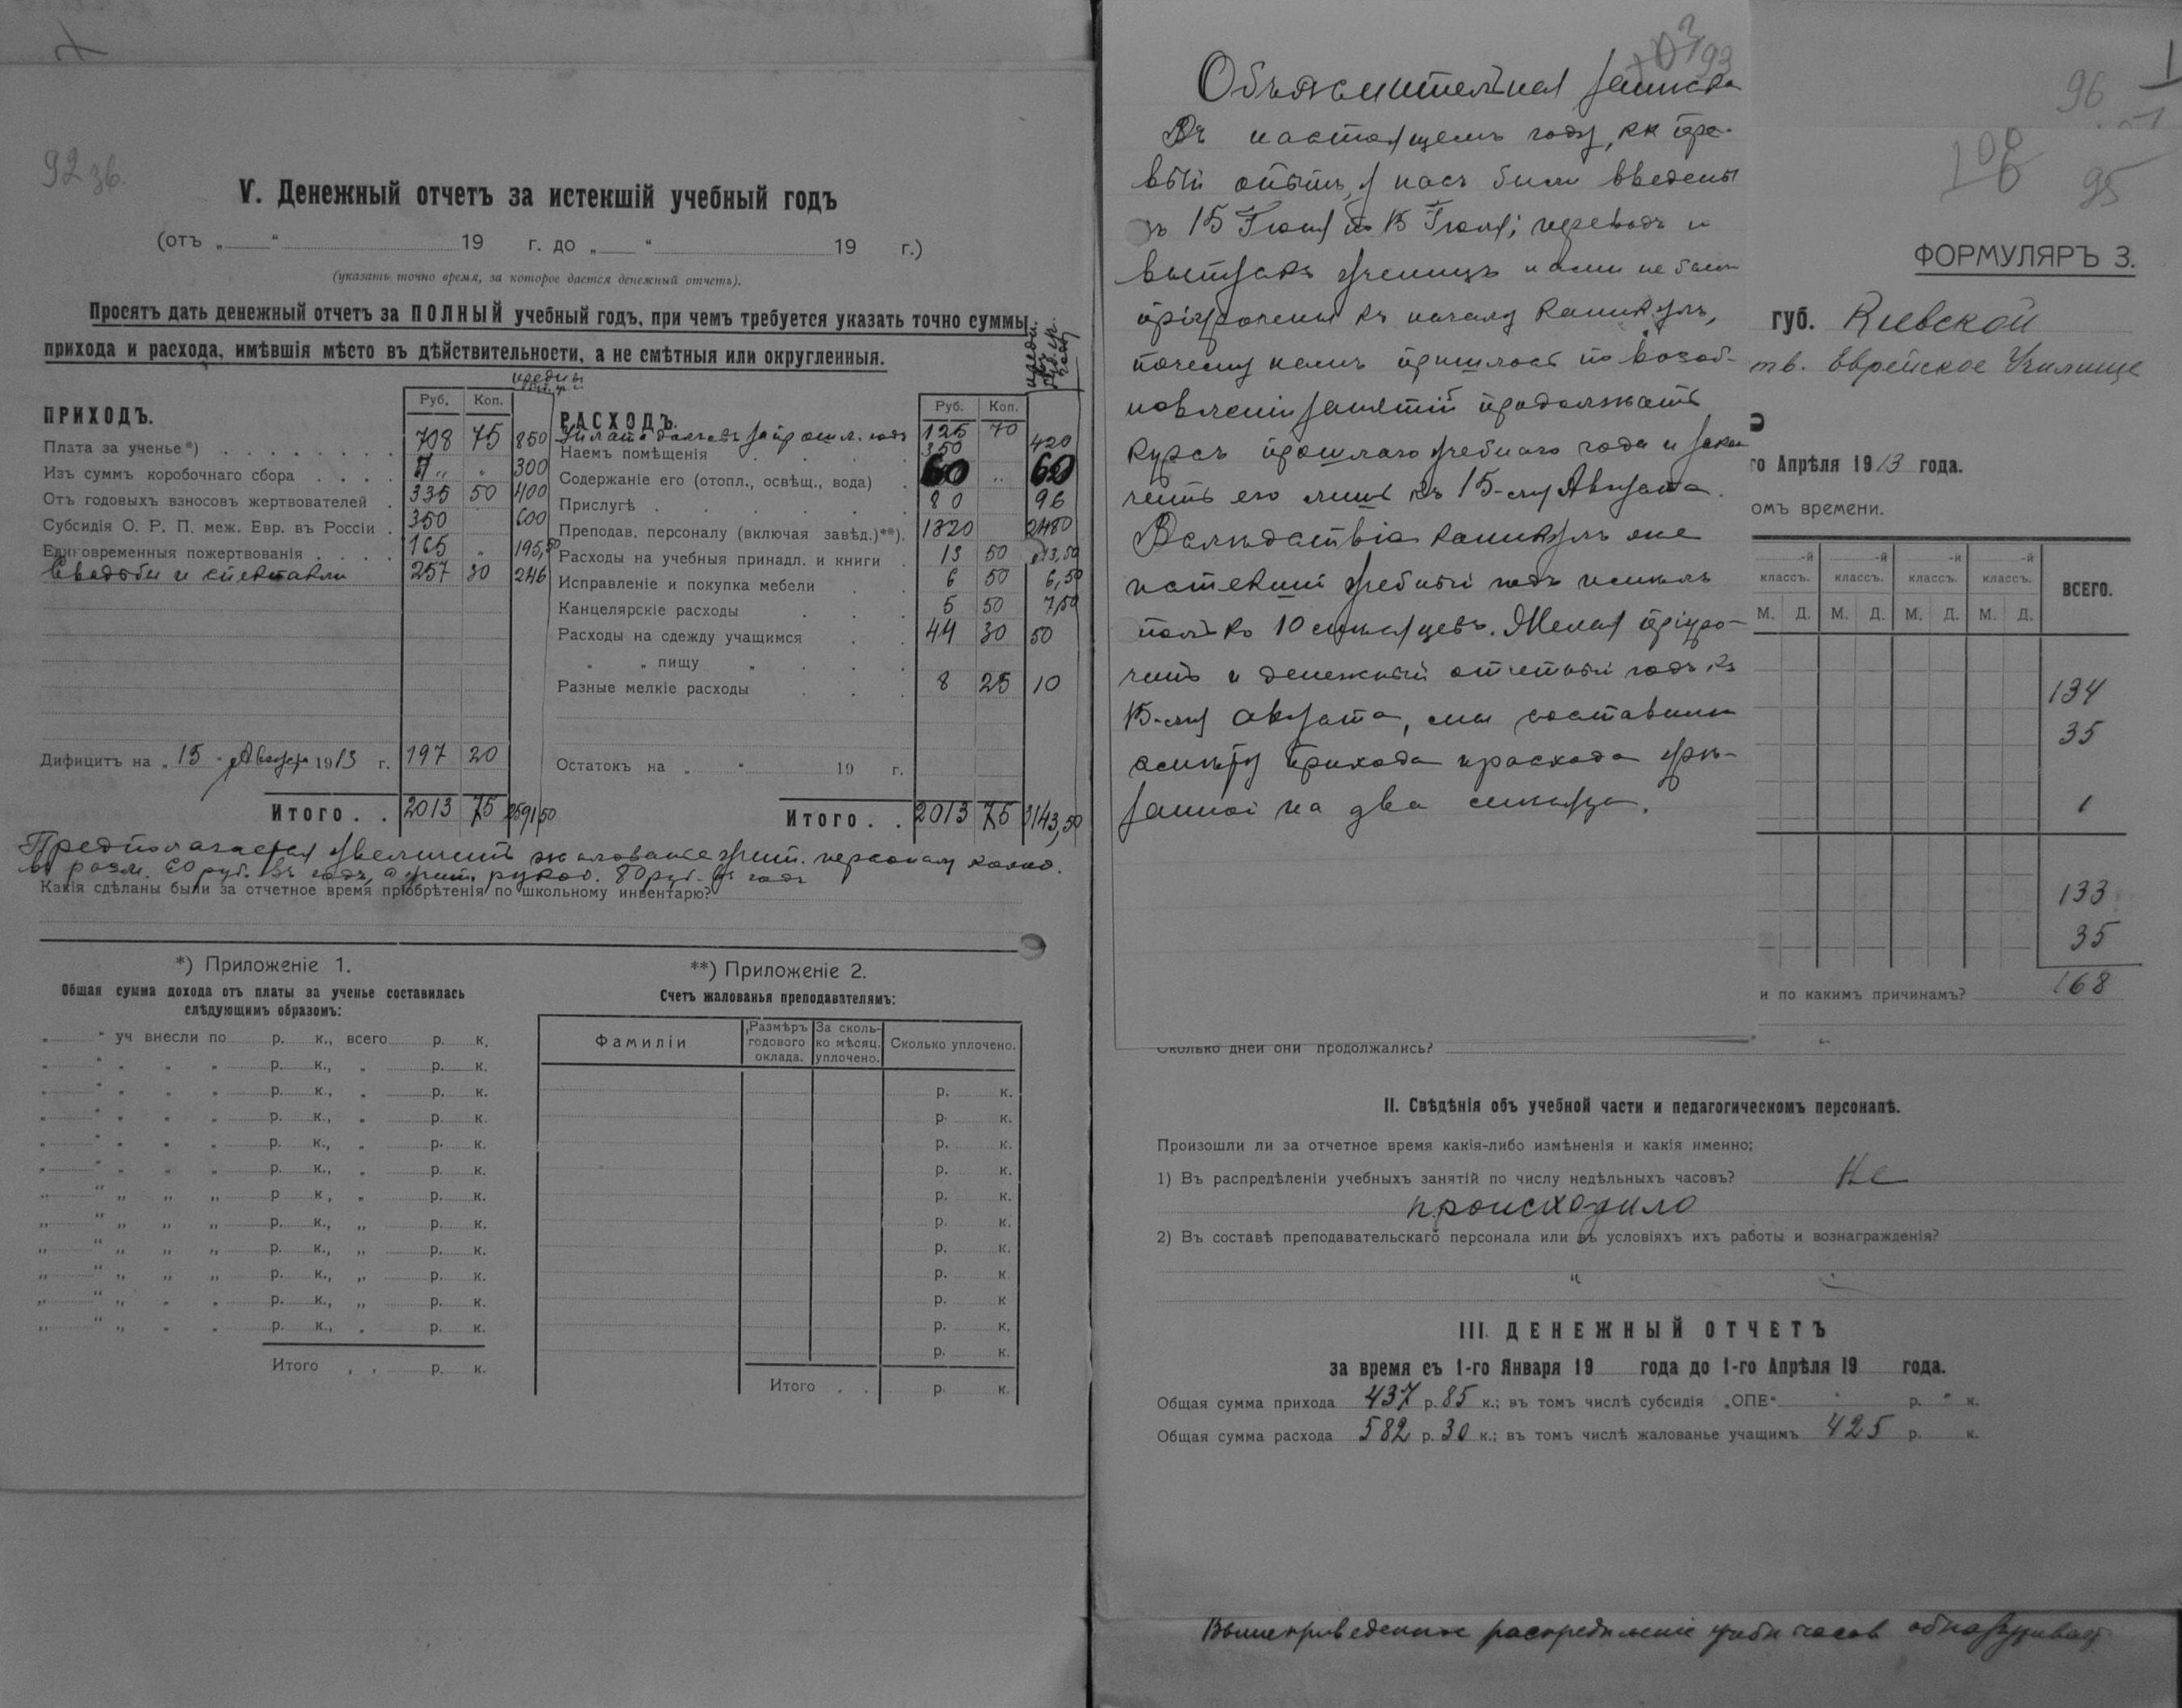 92 зв.
V. Денежный отчетъ за истекшій учебный годъ
(отъ „ “ 19 г. до „ “ 19 г.)
(указать точно время, за которое дается денежный отчетъ).
Просятъ дать денежный отчетъ за ПОЛНЫЙ учебный годъ, при чемъ требуется указать точно суммы
прихода и расхода, имѣвшія мѣсто въ дѣйствительности, а не смѣтныя или округленныя.
ПРИХОДЪ.
Руб. Коп.
Плата за ученье*) 708 75 850
Изъ суммъ коробочнаго сбора „ „ 300
Отъ годовыхъ взносовъ жертвователей 335 50 400
Субсидія О. Р. П. меж. Евр. въ Россіи 350 600
Единовременныя пожертвованія 165 „ 195,50
Свадьбы и спектакли 257 30 246
Дифицитъ на „ 15 “ Августа 1913 г. 197 20
Итого . . 2013 75 2591,50
РАСХОДЪ.
Руб. Коп.
Уплата долговъ за прошл. годъ 125 70
Наемъ помѣщенія 350 420
Содержаніе его (отопл., освѣщ., вода) 60 „ 60
Прислугѣ 80 96
Преподав. персоналу (включая завѣд.)**). 1320 2480
Расходы на учебныя принадл. и книги 13 50 13,50
Исправленіе и покупка мебели 6 50 6,50
Канцелярскіе расходы 5 50 7,50
Расходы на одежду учащимся 44 30 50
„ „ пищу „
Разные мелкіе расходы 8 25 10
Остатокъ на „ “ 19 г.
Итого . . 2013 75 3143,50
Предполагается увеличить жалованье учит. персоналу
въ разм. 60 руб. въ годъ, а учит. рукод. 80 руб. въ годъ
Какія сдѣланы были за отчетное время пріобрѣтенія по школьному инвентарю?
*) Приложеніе 1.
Общая сумма дохода отъ платы за ученье составилась
слѣдующимъ образомъ:
„ “ уч внесли по р. к., всего р. к.
„ “ „ „ „ р. к., „ р. к.
„ “ „ „ „ р. к., „ р. к.
„ “ „ „ „ р. к., „ р. к.
„ “ „ „ „ р. к., „ р. к.
„ “ „ „ „ р. к., „ р. к.
„ “ „ „ „ р к , „ р. к.
„ “ „ „ „ р. к., „ р. к.
„ “ „ „ „ р. к., „ р. к.
„ “ „ „ „ р. к., „ р. к.
„ “ „ „ „ р. к., „ р. к.
„ “ „ „ „ р. к., „ р. к.
Итого р. к.
**) Приложеніе 2.
Счетъ жалованья преподавателямъ:
Фамиліи
Размѣръ годового оклада.
За сколько мѣсяц. уплочено.
Сколько уплочено.
р. к.
р. к.
р. к.
р. к.
р. к.
р. к.
р. к.
р. к
р. к
р. к.
р. к.
Итого . . р. к.
93
Объяснительная записка
Въ настоящемъ году, какъ пер-
вый опытъ, у насъ были введены
съ 15 Іюня по 15 Іюля; переводъ и
выпускъ ученицъ нами не были
пріурочены къ началу каникулъ,
почему намъ пришлось по возоб-
новленіи занятій продолжать
курсъ прошлаго учебнаго года и закон-
чить его лишь къ 15-му Августа.
Вслѣдствіе каникулъ же
истекшій учебный годъ имѣлъ
только 10 мѣсяцевъ. Желая пріуро-
чить и денежный отчетный годъ къ
15-му августа, мы составили
смѣту прихода и расхода урѣ-
занной на два мѣсяца.
96
95
ФОРМУЛЯРЪ 3.
губ. Кіевской
тв. Еврейское Училище
го Апрѣля 1913 года.
омъ времени.
-й классъ. -й классъ. -й классъ. -й классъ. ВСЕГО.
М. Д. М. Д. М. Д. М. Д.
134
35
1
133
35
168
и по какимъ причинамъ?
Сколько дней они продолжались?
II. Свѣдѣнія объ учебной части и педагогическомъ персоналѣ.
Произошли ли за отчетное время какія-либо измѣненія и какія именно;
1) Въ распредѣленіи учебныхъ занятій по числу недѣльныхъ часовъ? Не
происходило
2) Въ составѣ преподавательскаго персонала или въ условіяхъ ихъ работы и вознагражденія?
„
III. ДЕНЕЖНЫЙ ОТЧЕТЪ
за время съ 1-го Января 19 года до 1-го Апрѣля 19 года.
Общая сумма прихода 437 р. 85 к.; въ томъ числѣ субсидія „ОПЕ“ р. „ к.
Общая сумма расхода 582 р. 30 к.; въ томъ числѣ жалованье учащимъ 425 р. к.
Вышеприведенное распредѣленіе учебн часов обнаруживает